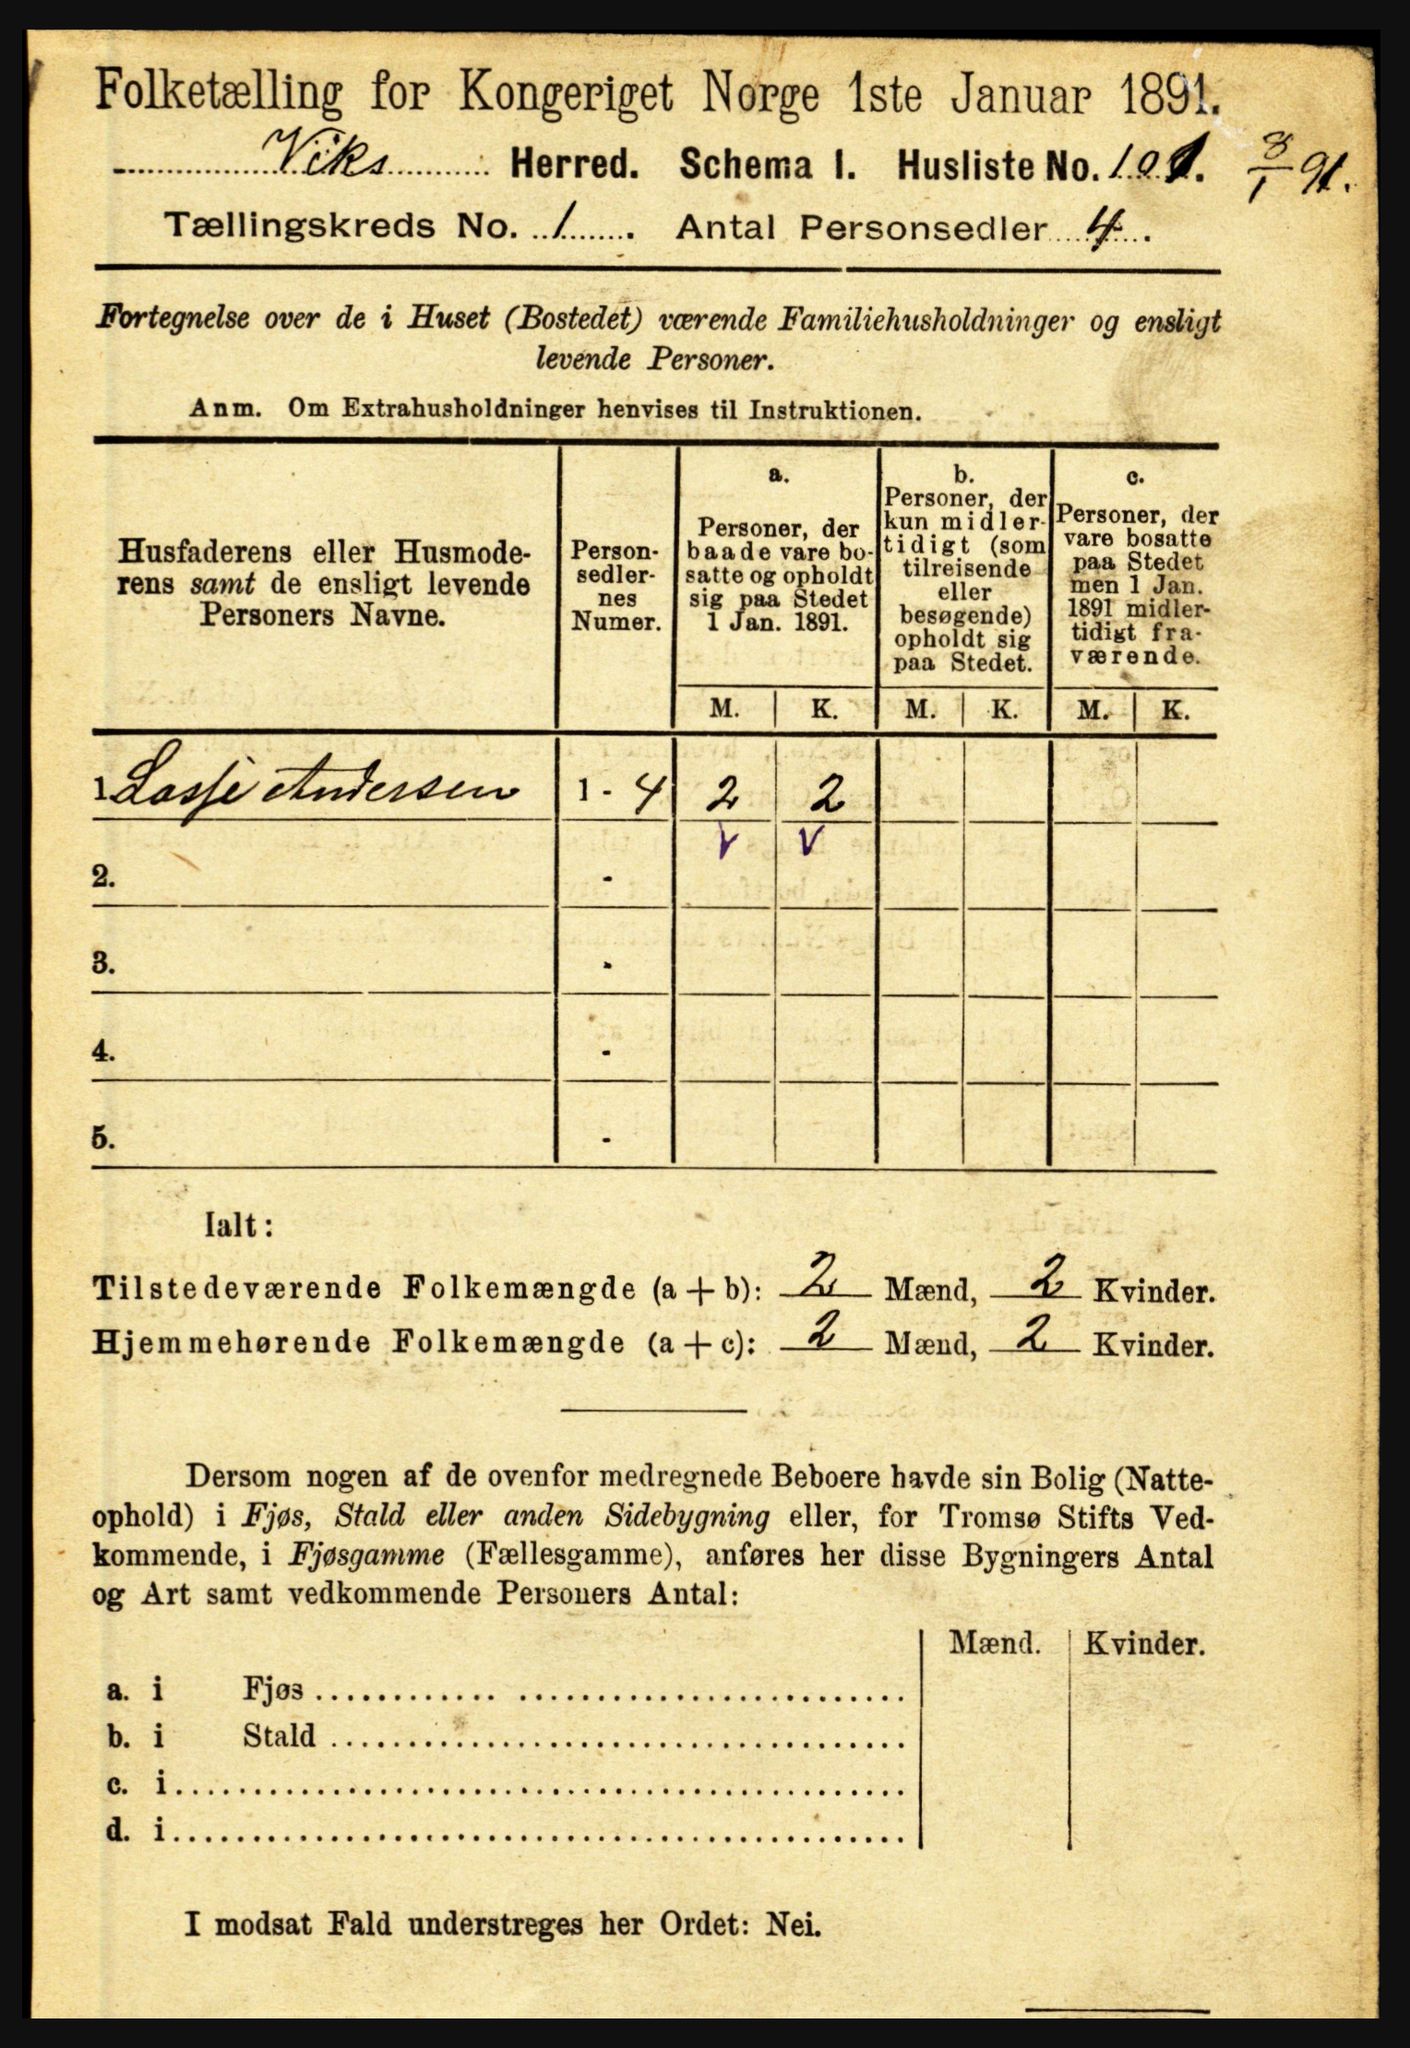 Folketælling for Kongeriget Norge 1ste Januar 1891.
Viks Herred. Schema I. Husliste No. 101. 8/1 91.
Tællingskreds No. 1. Antal Personsedler 4.
Fortegnelse over de i Huset (Bostedet) værende Familiehusholdninger og ensligt
levende Personer.
Anm. Om Extrahusholdninger henvises til Instruktionen.
Husfaderens eller Husmode-
rens samt de ensligt levende
Personers Navne.
Person-
sedler-
nes
Numer.
a.
Personer, der
baade vare bo-
satte og opholdt
sig paa Stedet
1 Jan. 1891.
b.
Personer, der
kun midler-
tidigt (som
tilreisende
eller
besøgende)
opholdt sig
paa Stedet.
c.
Personer, der
vare bosatte
paa Stedet
men 1 Jan.
1891 midler-
tidigt fra-
værende.
M. K. M. K. M. K.
1. Lasse Andersen 1 - 4 2 2
2. -
3. -
4. -
5. -
Ialt:
Tilstedeværende Folkemængde (a + b): 2 Mænd, 2 Kvinder.
Hjemmehørende Folkemængde (a + c): 2 Mænd, 2 Kvinder.
Dersom nogen af de ovenfor medregnede Beboere havde sin Bolig (Natte-
ophold) i Fjøs, Stald eller anden Sidebygning eller, for Tromsø Stifts Ved-
kommende, i Fjøsgamme (Fællesgamme), anføres her disse Bygningers Antal
og Art samt vedkommende Personers Antal:
Mænd. Kvinder.
a. i Fjøs
b. i Stald
c. i
d. i
I modsat Fald understreges her Ordet: Nei.